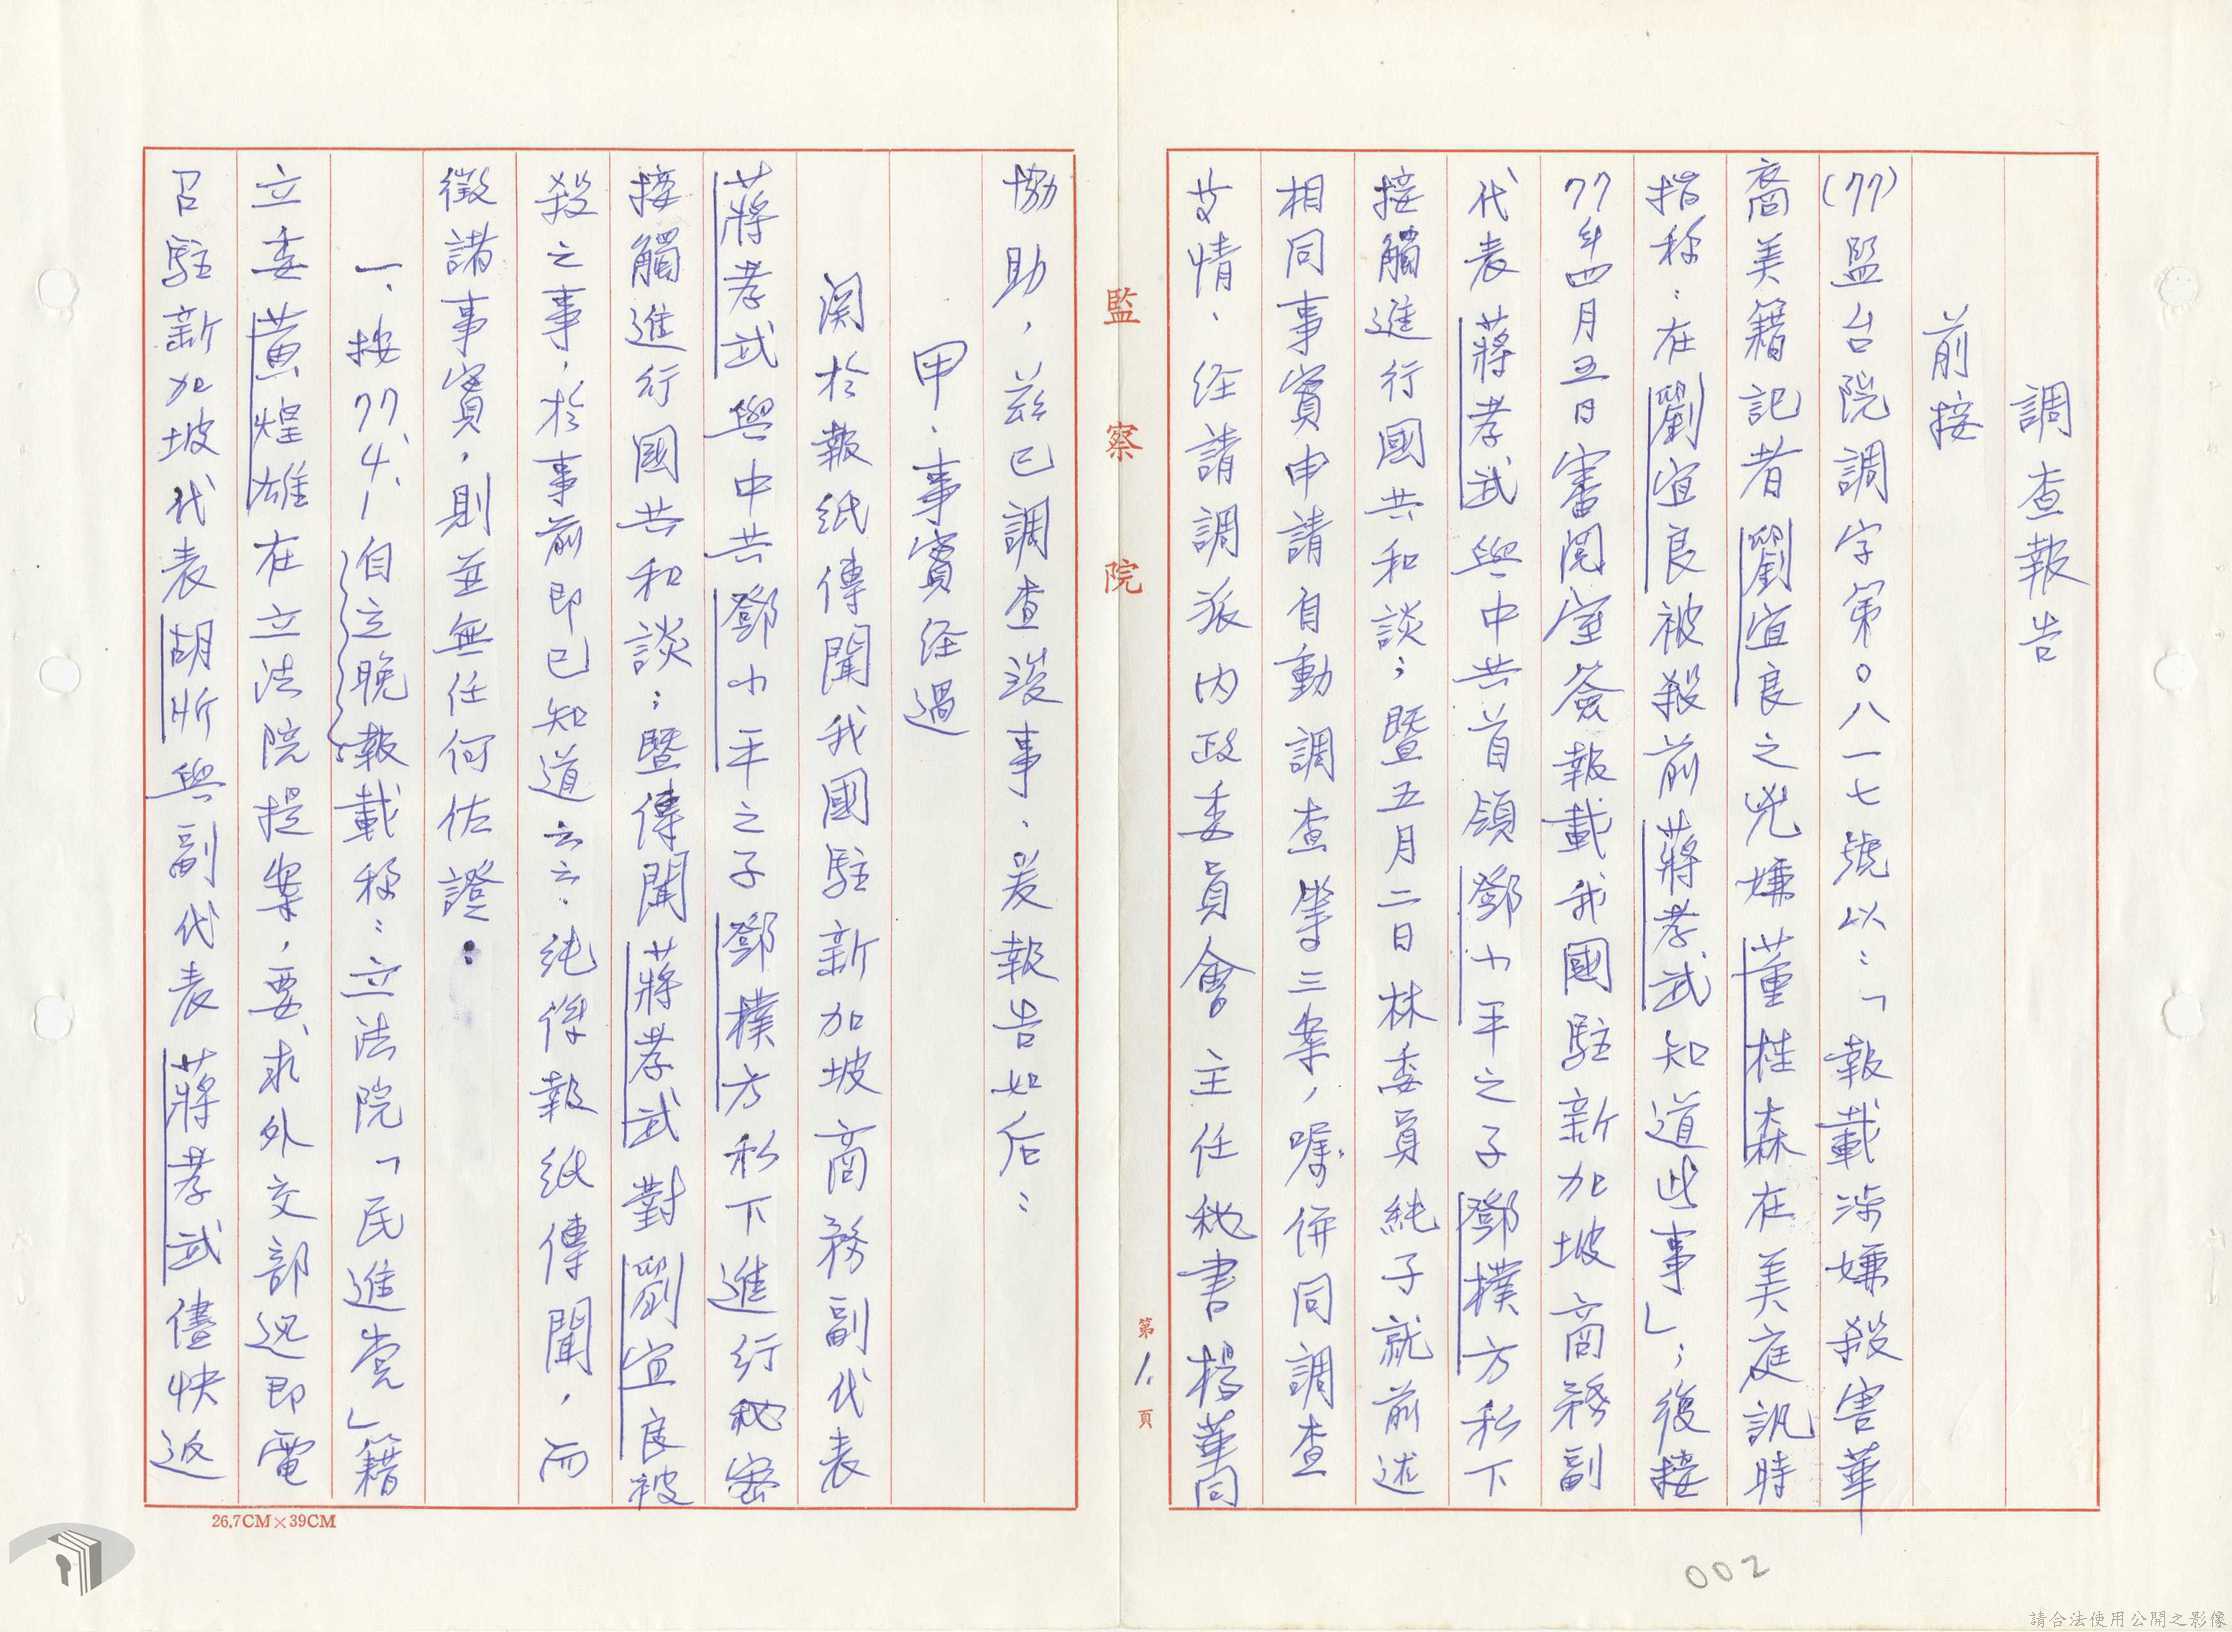 調查報告
前接
(77)監台院調字第0八一七號以：「報載涉嫌殺害華
裔美籍記者劉宜良之兇嫌董桂森在美庭訊時
指称：在劉宜良被殺前蔣孝武知道此事」；後接
77年四月五日審閱室簽報載我國駐新加坡商務副
代表蔣孝武與中共首領鄧小平之子鄧樸方私下
接觸進行國共和談；暨五月二日林委員純子就前述
相同事實申請自動調查等三案，囑併同調查
艾情．経請調派內政委員會主任秘書楊華同
協助，茲已調查竣事．爰報告如后：
甲．事實経過
関於報紙傳聞我國駐新加坡商務副代表
蔣孝武與中共鄧小平之子鄧樸方私下進行秘密
接觸進行國共和談；暨傳聞蔣孝武對劉宜良被
殺之事，於事前即已知道云云．純係報紙傳聞，而
徵諸事實，則並無任何佐證．
一．按77.4.1自立晚報載称：立法院「民進党」籍
立委黃煌雄在立法院提案，要求外交部迅即電
召駐新加坡代表胡炘與副代表蔣孝武儘快返
監察院
第1.頁
26.7CM×39CM
002
請合法使用公開之影像